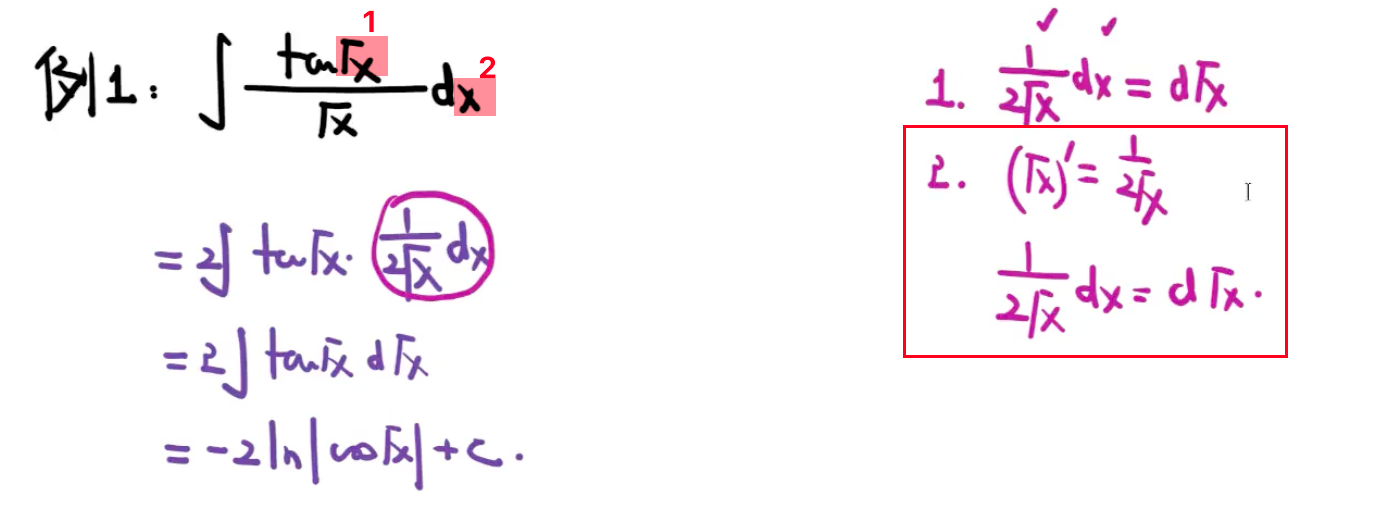 例1: ∫ tan√x / √x dx
1
2
= 2∫ tan√x · 1/(2√x) dx
= 2∫ tan√x d√x
= -2 ln|cos√x| + C.
✓ ✓
1. 1/(2√x) dx = d√x
2. (√x)' = 1/(2√x)
1/(2√x) dx = d√x.